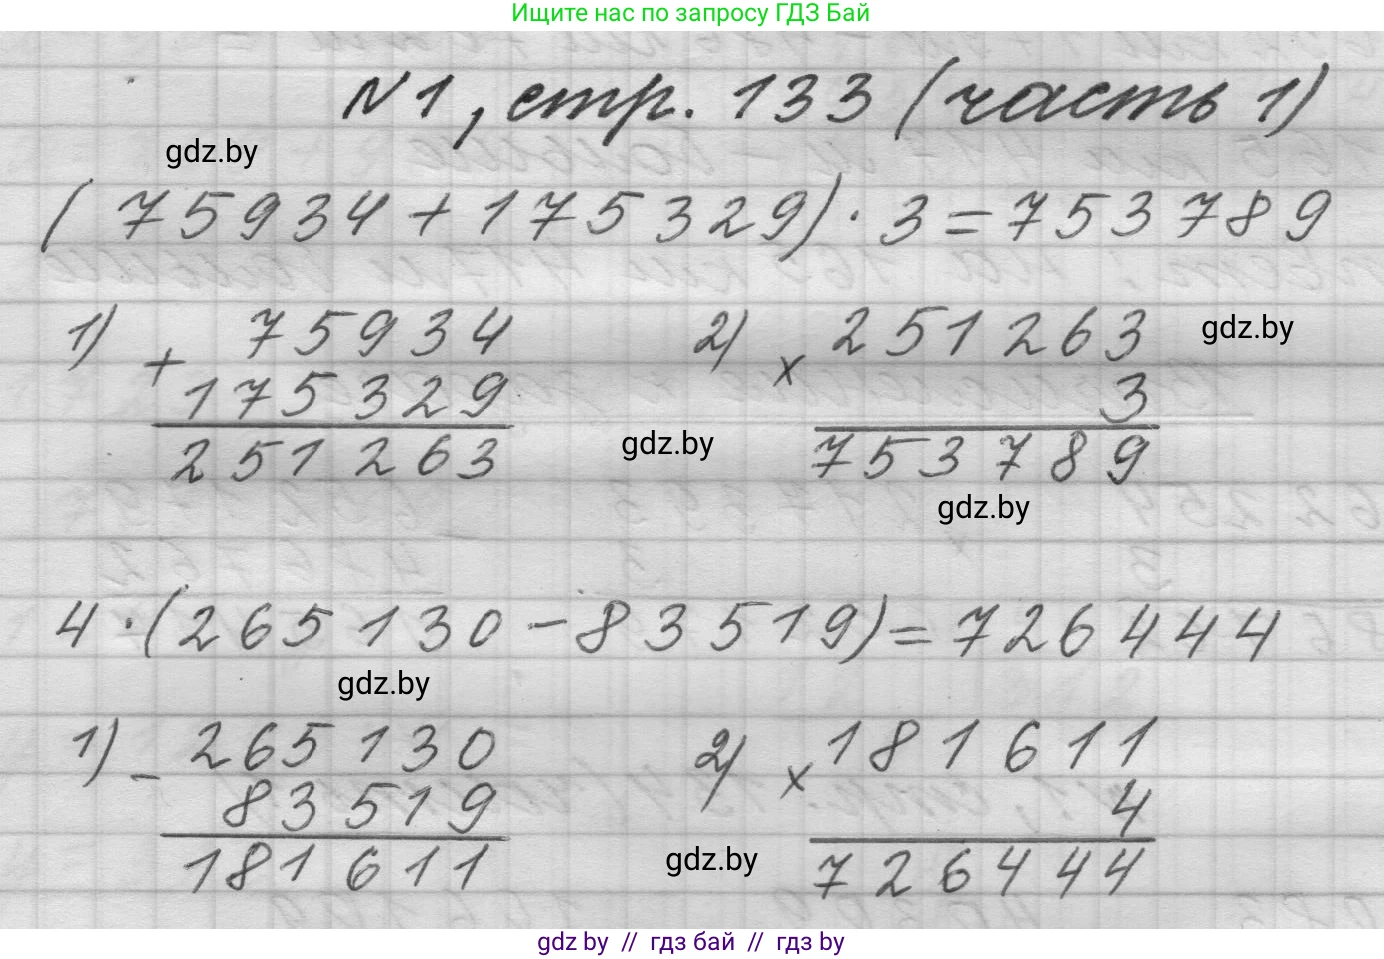 Ищите нас по запросу ГДЗ Бай
N1, стр. 133 (часть 1)
gdz.by
(75934+175329)·3=753789
1) + 75934
175329
251263
2) x 251263
3
753789
gdz.by
gdz.by
gdz.by
4·(265130-83519)=726444
gdz.by
1) - 265130
83519
181611
2) x 181611
4
726444
gdz.by
gdz by // гдз бай // гдз by